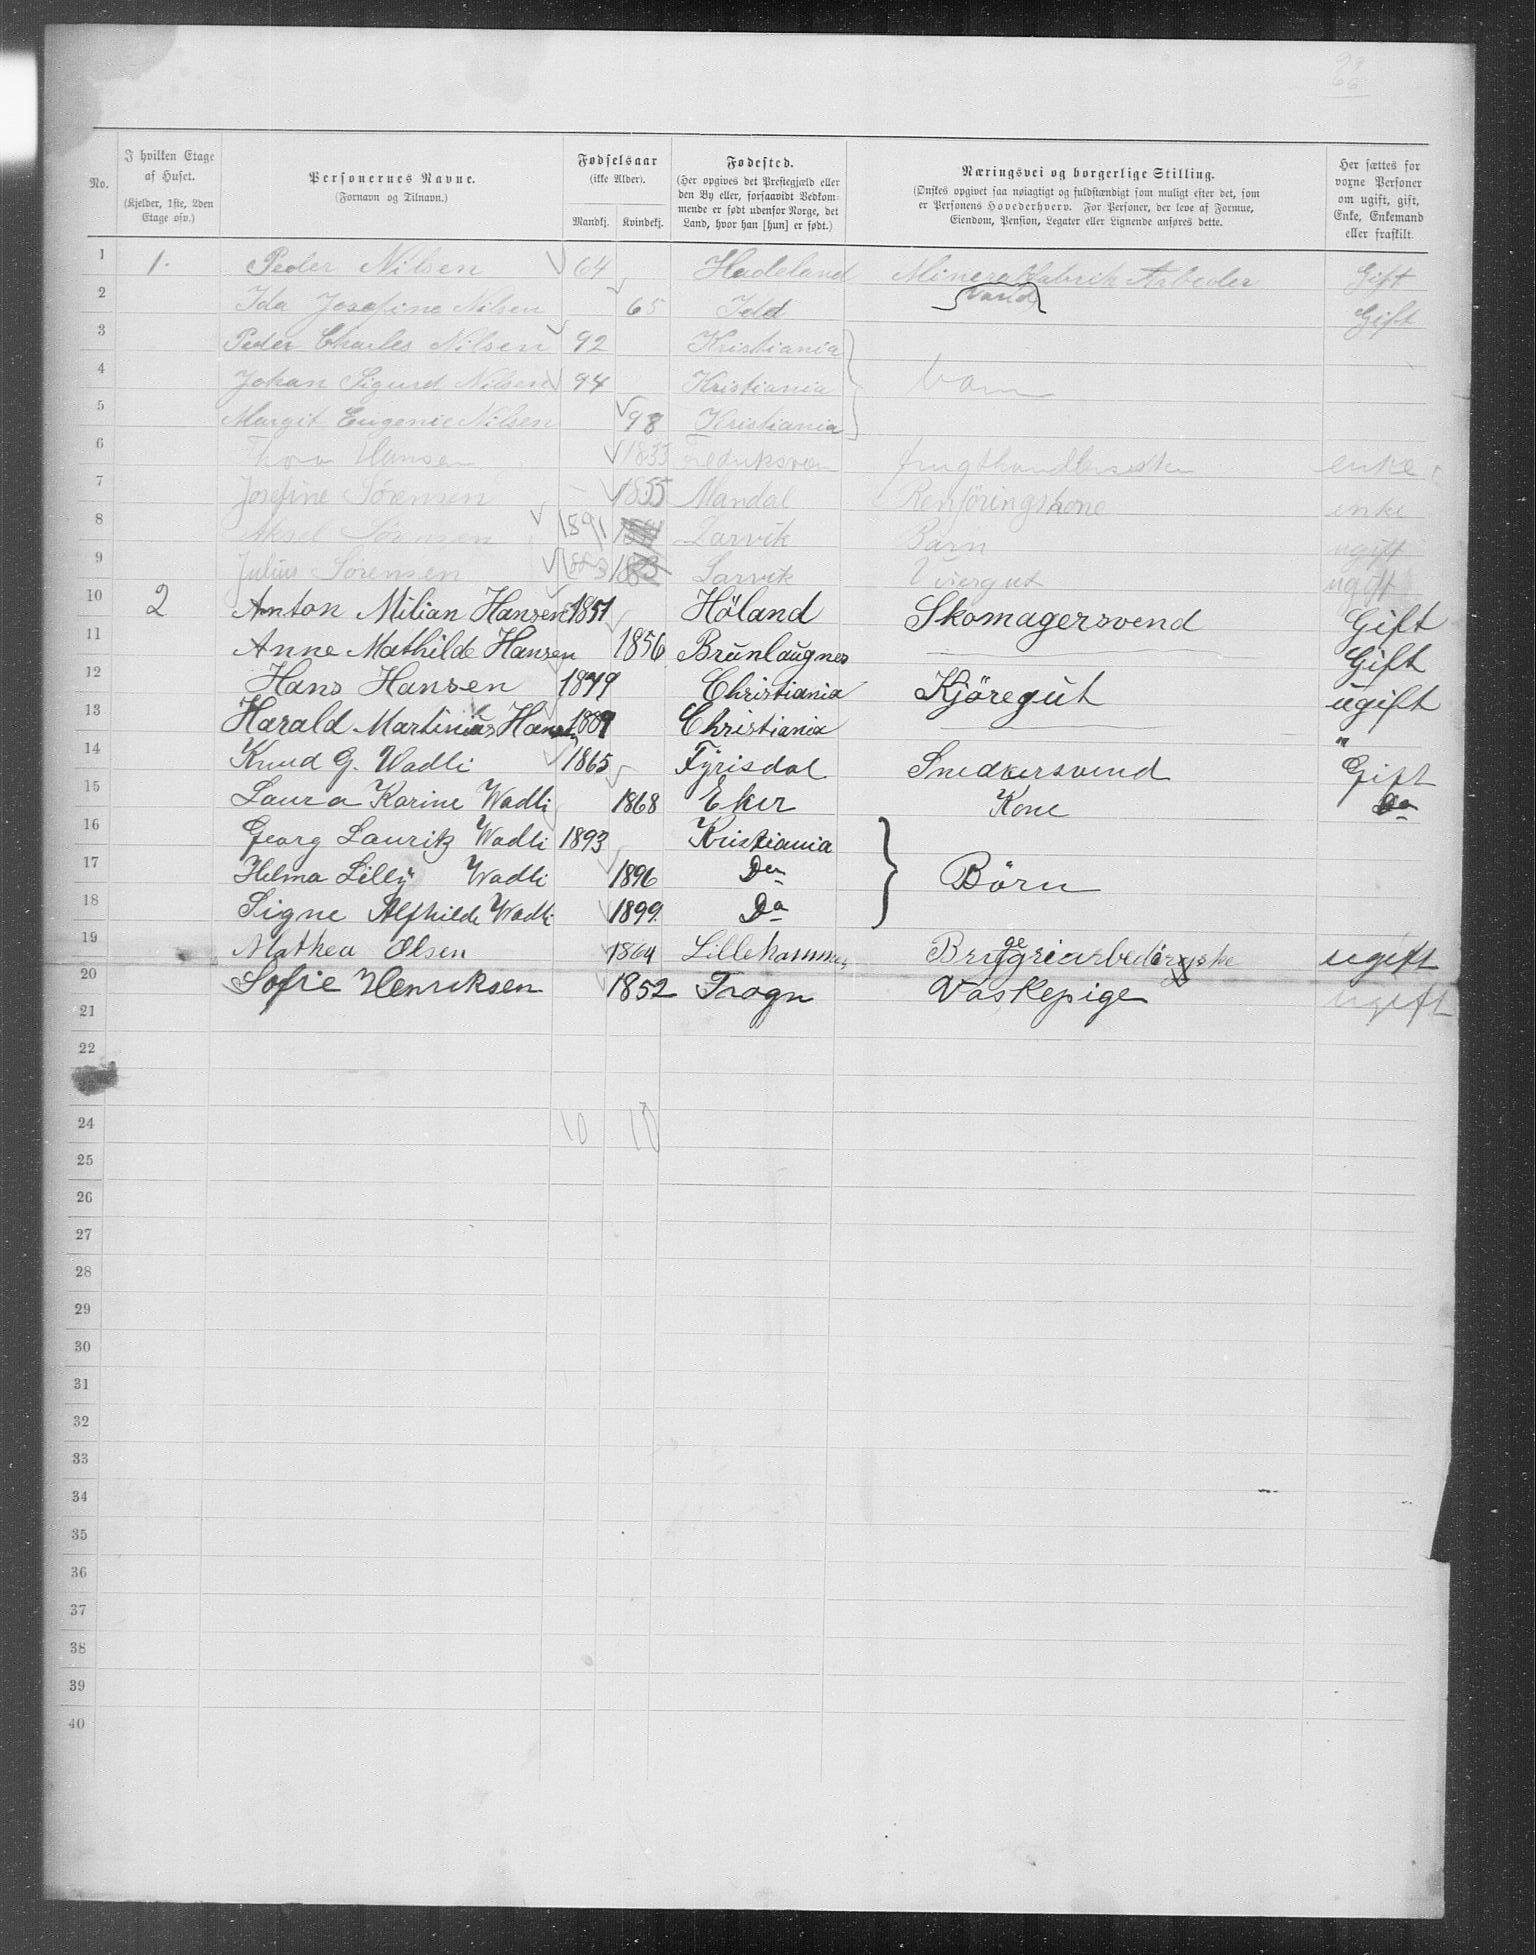 No.
I hvilken Etage af Huset. (Kjelder, 1ste, 2den Etage osv.)
Personernes Navne. (Fornavn og Tilnavn.)
Fødselsaar (ikke Alder). Mandkj. Kvindekj.
Fødested. (Her opgives det Prestegjæld eller den By eller, forsaavidt Vedkommende er født udenfor Norge, det Land, hvor han [hun] er født.)
Næringsvei og borgerlige Stilling. (Ønskes opgivet saa nøiagtigt og fuldstændigt som muligt efter det, som er Personens Hovederhverv. For Personer, der leve af Formue, Eiendom, Pension, Legater eller Lignende anføres dette.
Her sættes for voxne Personer om ugift, gift, Enke, Enkemand eller fraskilt.
1 1. Peder Nilsen 64 Hadeland Mineral vand fabrik Arbeder Gift
2 Ida Josefine Nilsen 65 Idd Gift
3 Peder Charles Nilsen 92 Kristiania
4 Johan Sigurd Nilsen 94 Kristiania barn
5 Margit Eugenie Nilsen 98 Kristiania
6 Thora Hansen 1833 Fredriksværn enke
7 Josefine Sørensen 1855 Mandal Renføringskone enke
8 Aksel Sørensen 1891 Larvik Barn ugift
9 Julius Sørensen 1883 Larvik Visergut ugift
10 2 Anton Milian Hansen 1851 Höland Skomagersvend Gift
11 Anne Mathilde Hansen 1856 Brunlaugnes Gift
12 Hans Hansen 1879 Christiania Kjöregut ugift
13 Harald Martinius Hansen 1889 Christiania "
14 Knud G. Wadli 1865 Fyrisdal Snedkersvend Gift
15 Laura Karine Wadli 1868 Eker Kone Do
16 Georg Lauritz Wadli 1893 Kristiania
17 Helma Lilly Wadli 1896 Do Börn
18 Signe Alfhilde Wadli 1899 Do
19 Mathea Olsen 1864 Lillehammer ugift
20 Sofie Henriksen 1852 Frogn Vaskepige ugift
21
22
24 10 10
25
26
27
28
29
30
31
32
33
34
35
36
37
38
39
40